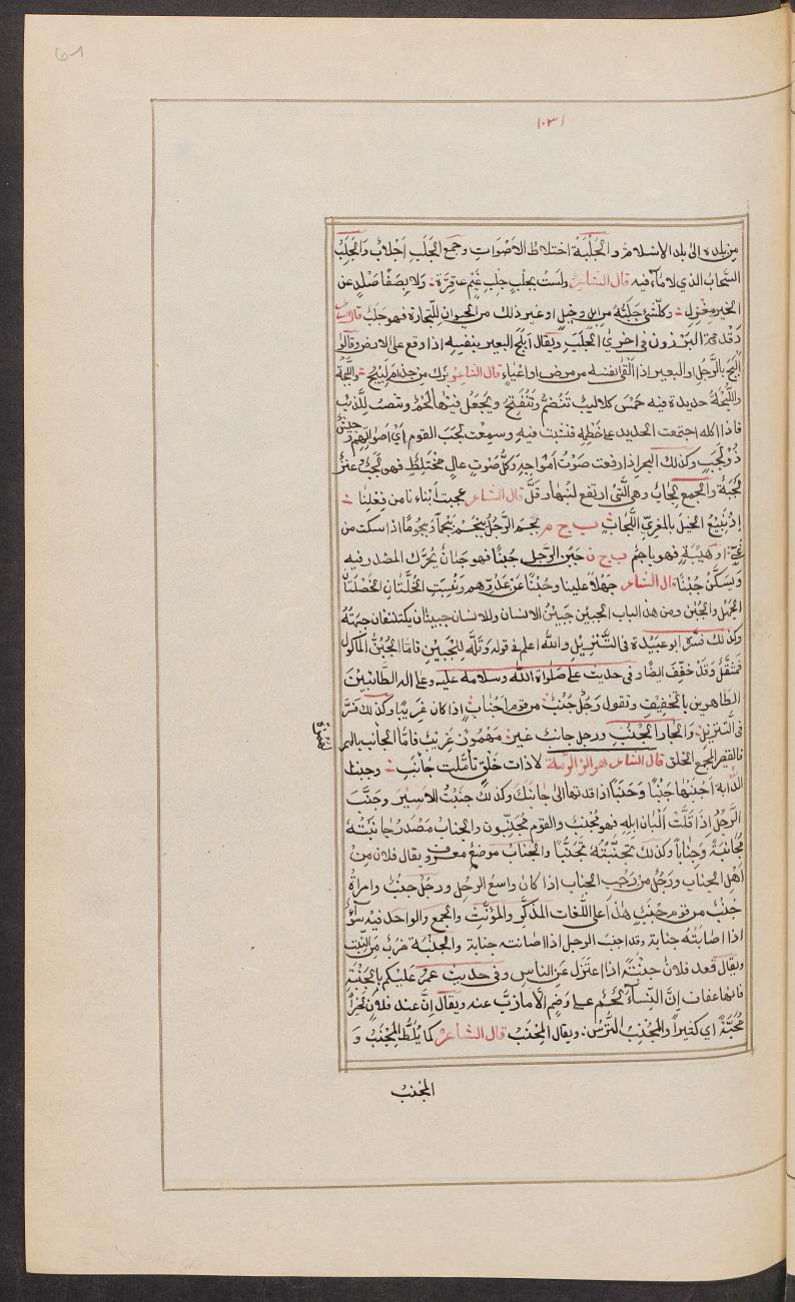 ١٠٣١
من بلده الى بلد الاسلام والجلبة اختلاط الاصوات وجمع الجلب اجلاب والجلب
السحاب الذي لا ماء فيه قال الشاعر ولست بجلب جلب غيم عاقرة ولا بصفا صلد عن
الخير معزل وكل شئ جلبته من ابل وخيل او غير ذلك من الحيوان للتجارة فهو جلب قال
وقد البزون في اخرى الجلب ويقال ابلج البعير بنفسه اذا وقع على الارض وقالوا
البج بالرجل والبعير اذا القى نفسه من مرض او اعياء قال الشاعر واللبجة
واللبجة حديدة فيه خمس كلاليب تنضم وتنفتح ويجعل فيها لحم وتنصب للذئب
فاذا اكله اجتمعت الحديد على خطمه فنشبت فيه وسمعت لجب القوم اي اصواتهم وجيش
ذو لجب وكذلك البحر اذا رفعت صوت امواجه وكل صوت عال مختلط فهو لجب عنز
لجبة والجمع لجاب وهي التي ارتفع لبنها وقل قال الشاعر عجبت ابناءنا من فعلنا
اذ نبيع الخيل بالمعزى اللجاب ب ج م بجم الرجل يبجم بجما وبجوما اذا سكت من
عي او هيبة فهو باجم ب ج ن جبن الرجل جبنا فهو جبان يحرك المصدر فيه
ويسكن جبنا قال الشاعر جهلا علينا وجبنا عن عدوهم وبئست الخلتان الخصلتان
الجهل والجبن ومن هذا الباب الجبين جبين الانسان وللانسان جبينان يكتنفان جبهته
وكذلك فسره ابو عبيدة في التنزيل والله اعلم في قوله وتله للجبين فاما الجبن المأكول
فمثقل وقد خفف ايضا وفي حديث علي صلواة الله وسلامه عليه وعلى اله الطائبين
الطاهرين بالتخفيف وتقول رجل جنب من قوم اجناب اذا كان غريبا وكذلك فسر
في التنزيل والجار الجنب ورجل جانب غير مهموز غريب فاما الجأنب بالهمز
فالقصير المجمع الخلق قال الشاعر هو الزلولة لا ذات خلق تأملت جأنب وجنبت
الدابة اجنبها جنبا وجنبا اذا قدتها الى جانبك وكذلك جنبت الاسير وجنب
الرجل اذا قلت البان ابله فهو مجنب والقوم مجنبون والجناب مصدر جانبته
مجانبة وجنابا وكذلك تجنبته تجنبا والجناب موضع معروف ويقال فلان من
اهل الجناب ورجل من رحب الجناب اذا كان واسع الرحل ورجل جنب وامراة
جنب من قوم جنب هذا اعلى اللغات المذكر والمؤنث والجمع والواحد فيه سواء
اذا اصابته جنابة وقد اجنب الرجل اذا اصابته جنابة والجنبة ضرب من النبت
ويقال قعد فلان جنبة اذا اعتزل عن الناس وفي حديث عمر عليكم بالجنبة
فانها عفاف ان النساء لحم على وضم الا ما ذب عنه ويقال ان عند فلان لخيرا
مجنبا اي كثيرا والمجنب الترس ويقال المجنب قال الشاعر كما يلط المجنب و
المجنب